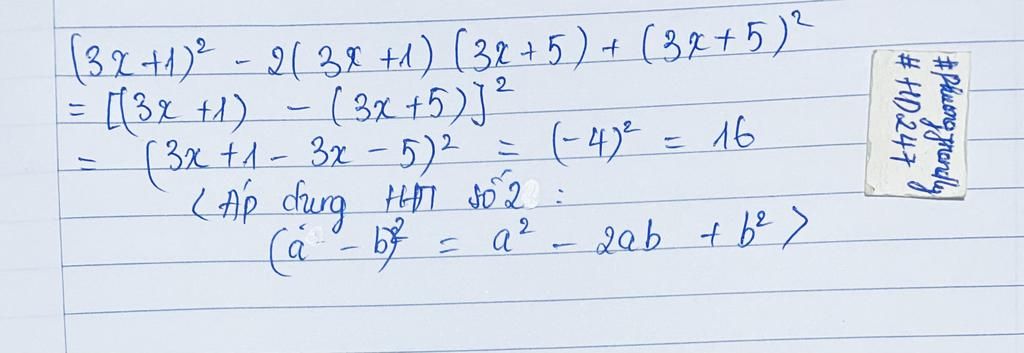 (3x+1)² - 2(3x+1)(3x+5) + (3x+5)²
= [(3x+1) - (3x+5)]²
= (3x+1-3x-5)² = (-4)² = 16
(Áp dụng HĐT số 2 :
(a - b)² = a² - 2ab + b²)
#phuongtrandly
#HD247